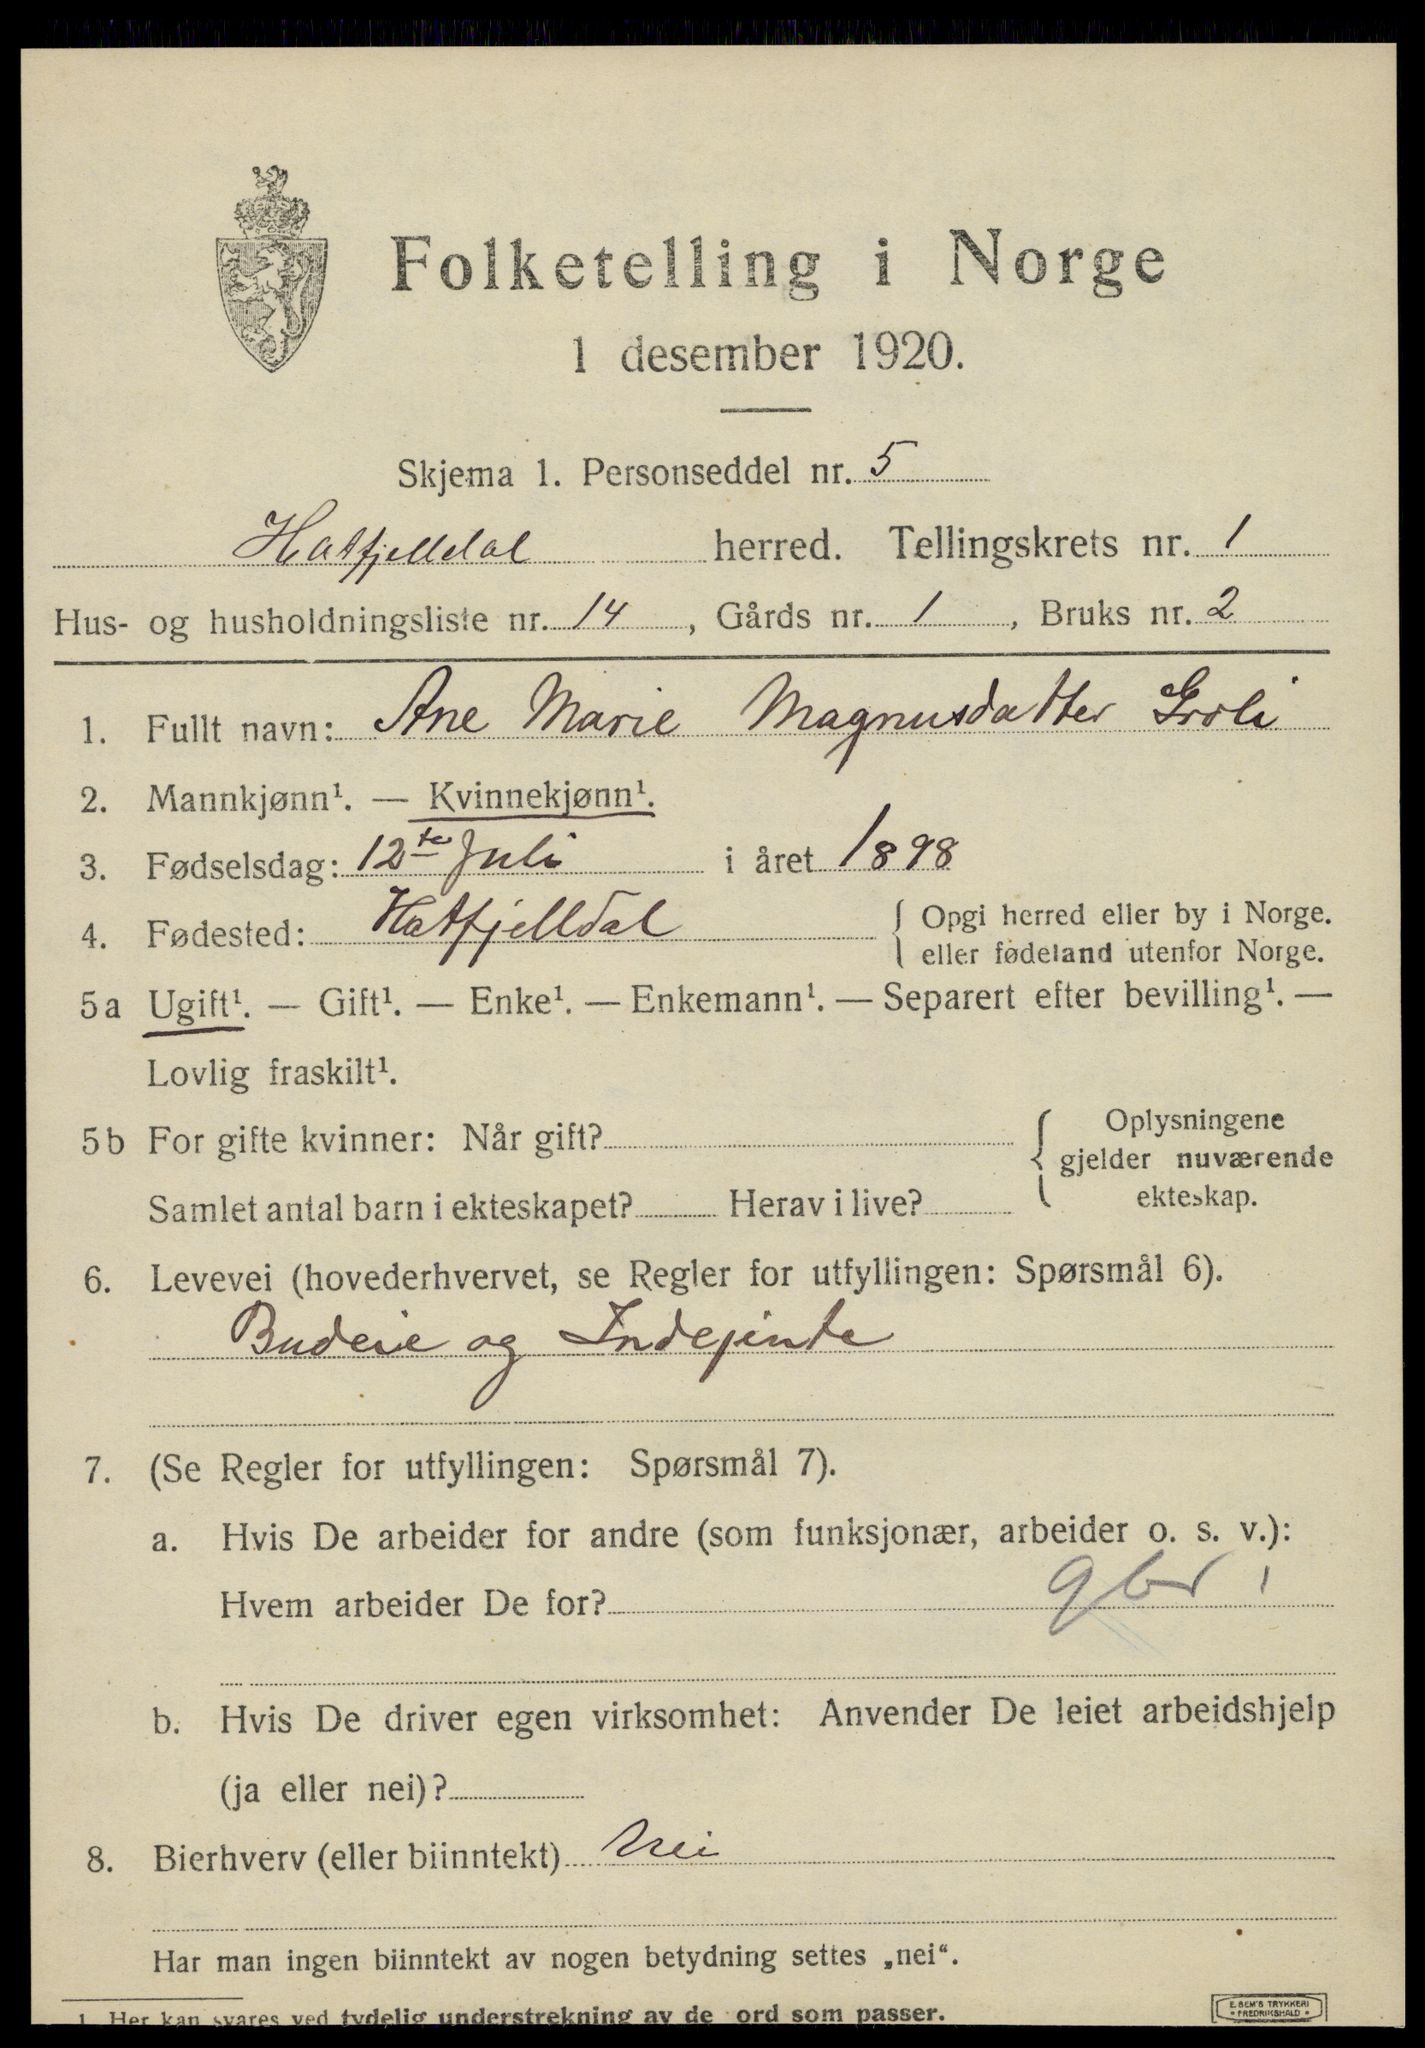 Folketelling i Norge
1 desember 1920.
Skjema 1. Personseddel nr. 5
Hatfjelldal herred. Tellingskrets nr. 1
Hus- og husholdningsliste nr. 14, Gårds nr. 1, Bruks nr. 2
1. Fullt navn: Ane Marie Magnusdatter Groli
2. Mannkjønn¹. — Kvinnekjønn¹.
3. Fødselsdag: 12te Juli i året 1898
4. Fødested: Hatfjelldal { Opgi herred eller by i Norge.
eller fødeland utenfor Norge.
5a Ugift¹. — Gift¹. — Enke¹. — Enkemann¹. — Separert efter bevilling¹. —
Lovlig fraskilt¹.
5b For gifte kvinner: Når gift? { Oplysningene
gjelder nuværende
ekteskap.
Samlet antal barn i ekteskapet? Herav i live?
6. Levevei (hovederhvervet, se Regler for utfyllingen: Spørsmål 6).
Budeie og Indejente
7. (Se Regler for utfyllingen: Spørsmål 7).
a. Hvis De arbeider for andre (som funksjonær, arbeider o. s. v.):
Hvem arbeider De for? gbr 1
b. Hvis De driver egen virksomhet: Anvender De leiet arbeidshjelp
(ja eller nei)?
8. Bierhverv (eller biinntekt) Nei
Har man ingen biinntekt av nogen betydning settes „nei“.
1. Her kan svares ved tydelig understrekning av de ord som passer.
E. SEM'S TRYKKERI
FREDRIKSHALD